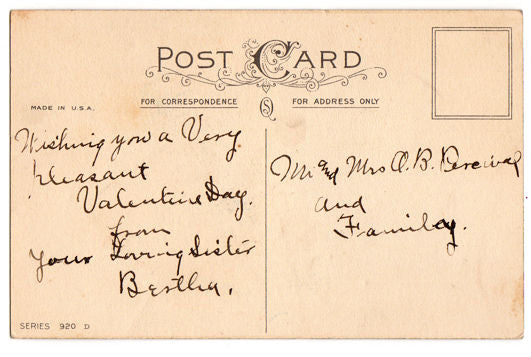 POST CARD
MADE IN U.S.A.
FOR CORRESPONDENCE
FOR ADDRESS ONLY
Wishing you a Very
pleasant
Valentine Day.
from
your Loving Sister
Bertha.
Mr and Mrs O. B. Percival
and
Familey.
SERIES 920 D